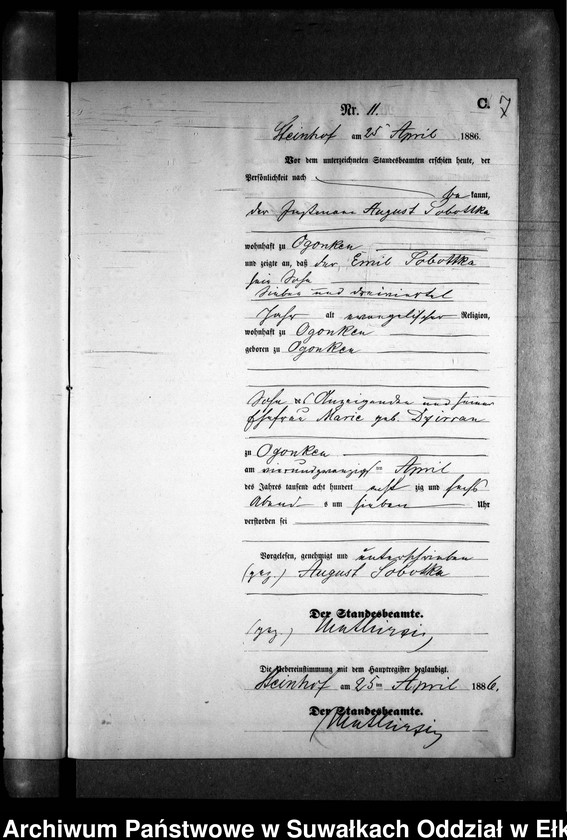 C.
Nr. 11.
Steinhof am 25ten April 1886.
Vor dem unterzeichneten Standesbeamten erschien heute, der
Persönlichkeit nach
be kannt,
der Instmann August Sobottka
wohnhaft zu Ogonken
und zeigte an, daß der Emil Sobottka
sein Sohn
sieben und dreiviertel
Jahr alt evangelischer Religion,
wohnhaft zu Ogonken
geboren zu Ogonken
Sohn des Anzeigenden und seiner
Ehefrau Marie geb.
zu Ogonken
am vierundzwanzigsten April
des Jahres tausend acht hundert acht zig und sechs
Abend s um sieben Uhr
verstorben sei
Vorgelesen, genehmigt und unterschrieben
(gez.) August Sobottka
Der Standesbeamte.
(gez.)
Die Uebereinstimmung mit dem Hauptregister beglaubigt.
Steinhof am 25ten April 1886.
Der Standesbeamte.
Archiwum Państwowe w Suwałkach Oddział w Ełk